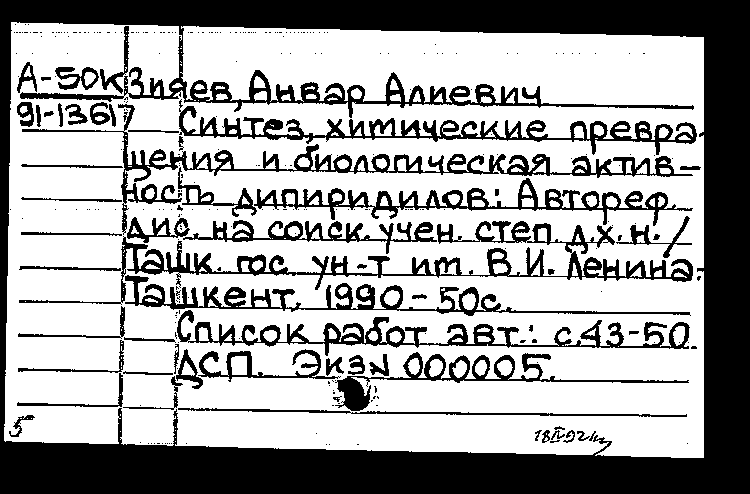 А-50К Зияев, Анвар Алиевич
91-13617 Синтез, химические превра-
щения и биологическая актив-
ность дипиридилов: Автореф.
дис. на соиск. учен. степ. д.х.н. /
Ташк. гос. ун-т им. В.И. Ленина.-
Ташкент, 1990.-50с.
Список работ авт.: с.43-50.
ДСП. Экз№ 000005.
5